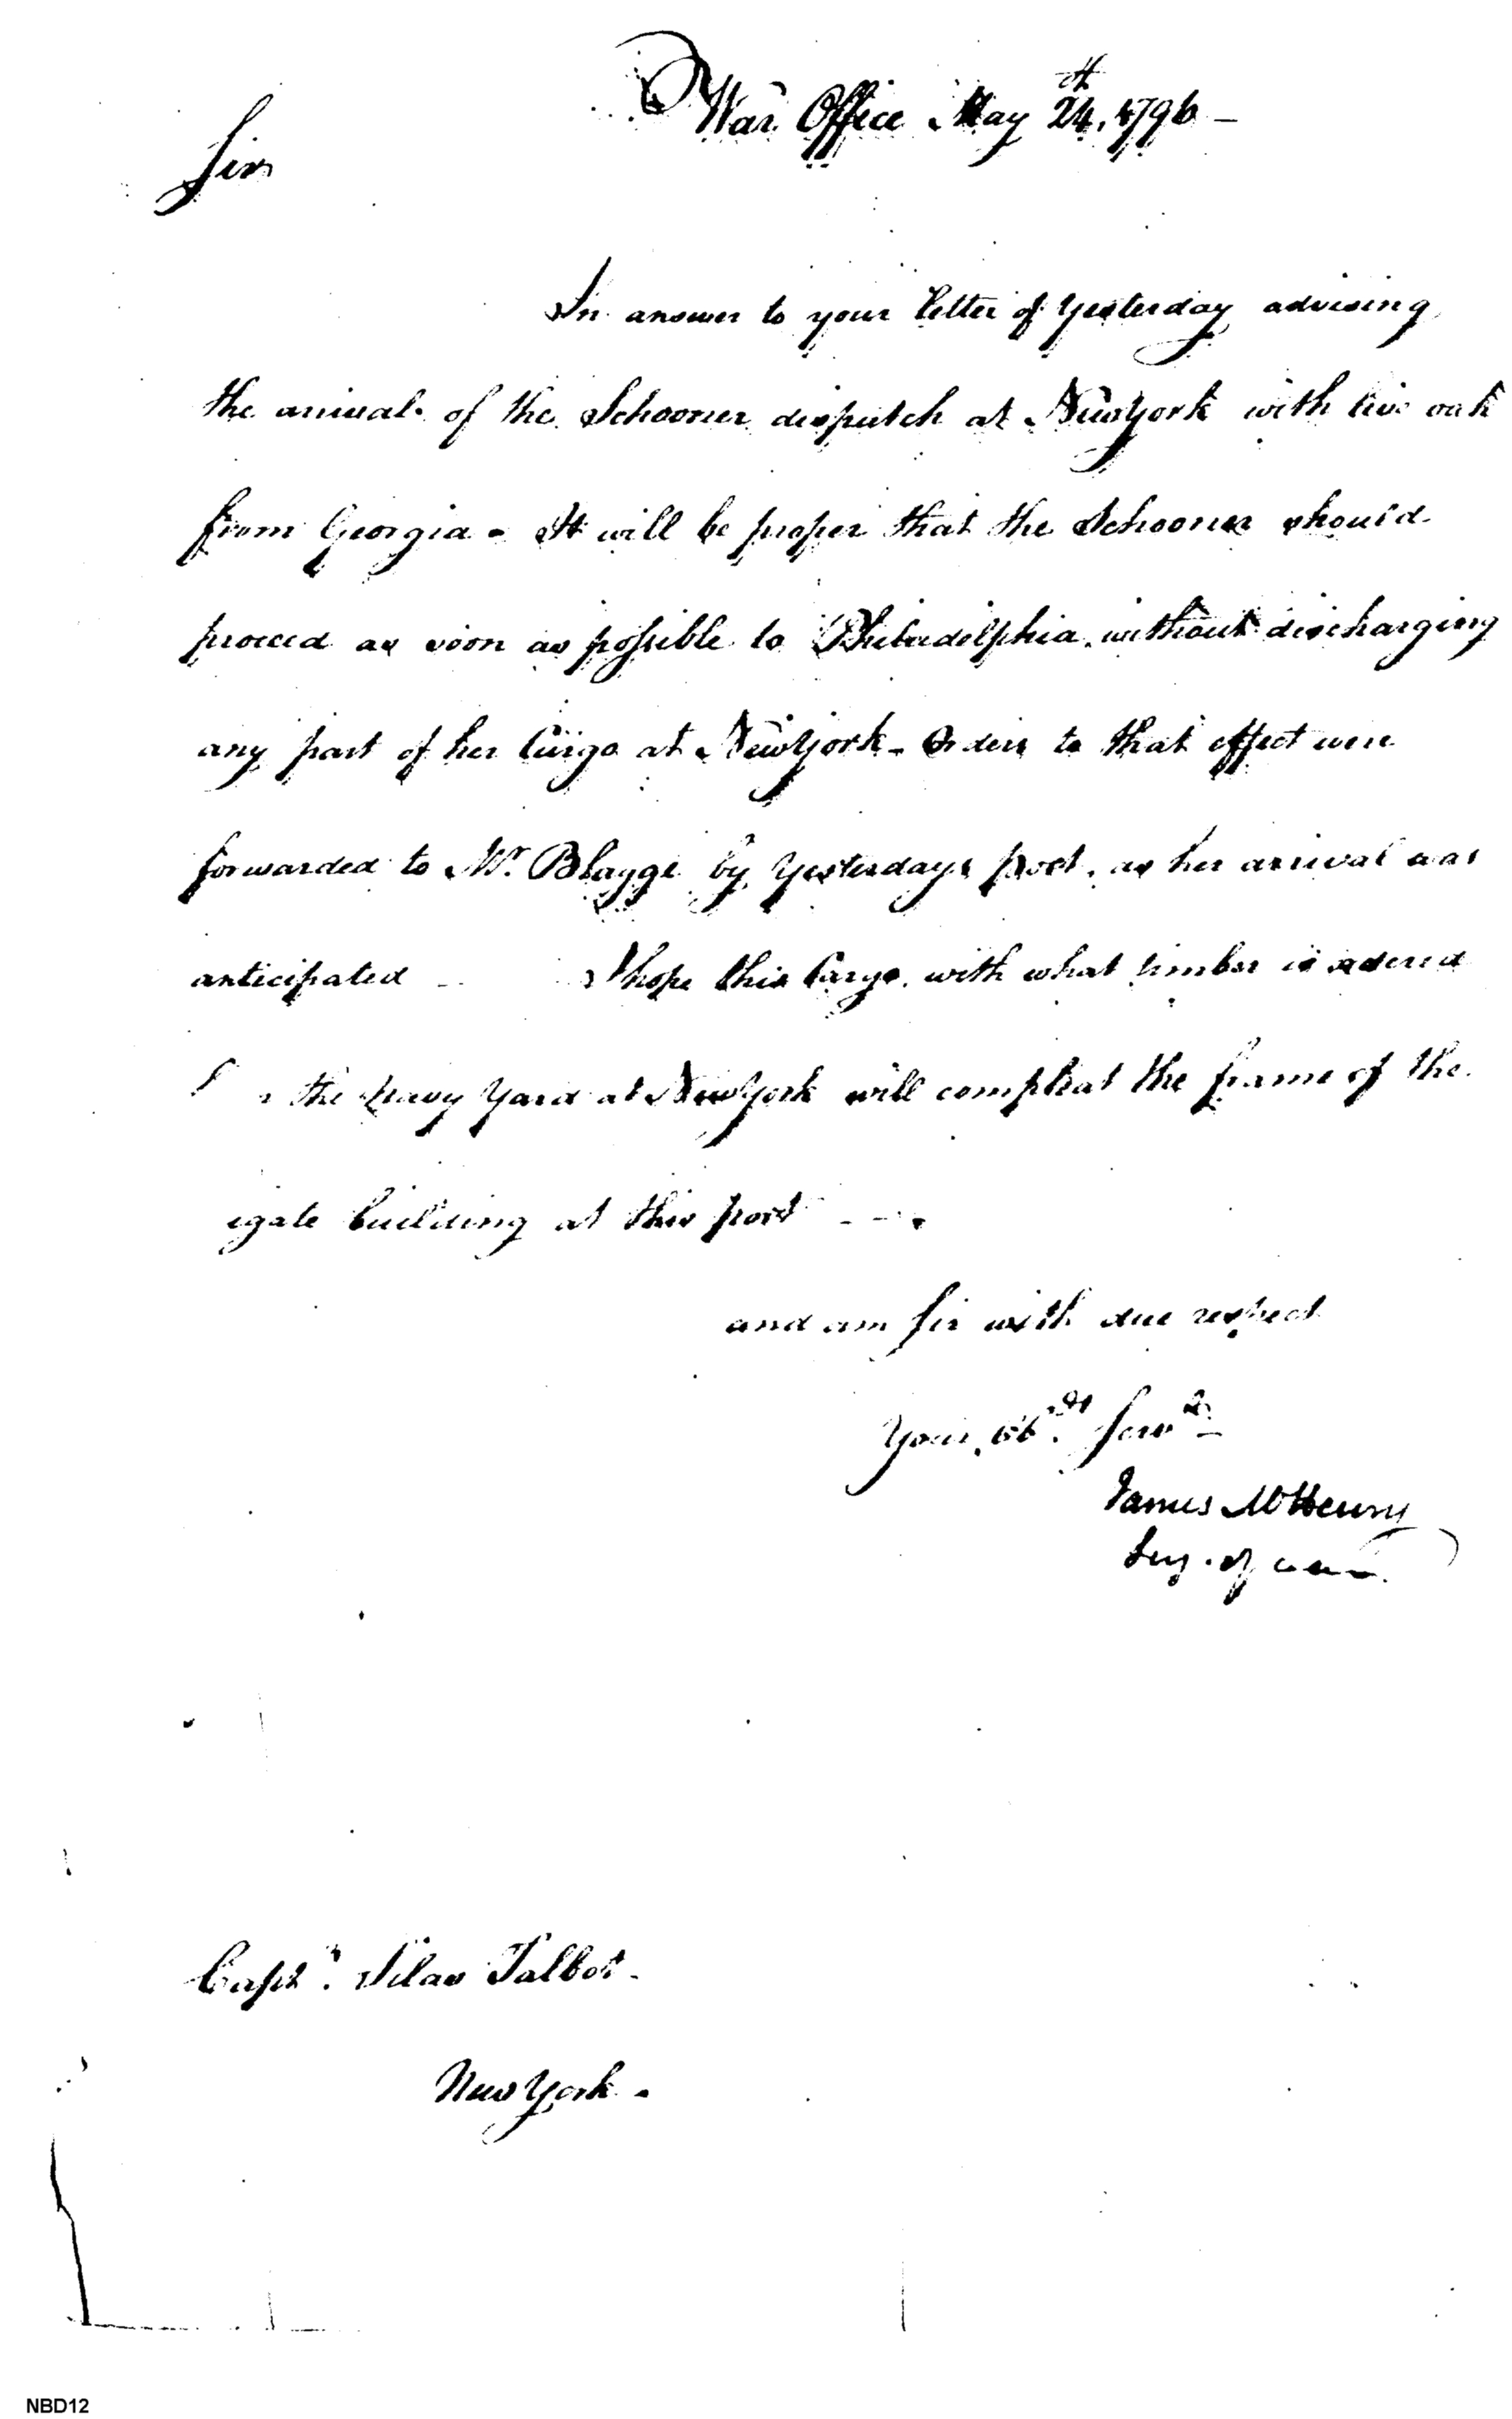 War Office May 24th, 1796 –
Sir
In answer to your letter of Yesterday advising
the arrival of the Schooner dispatch at New York with live oak
from Georgia - It will be proper that the Schooner should
proceed as soon as possible to Philadelphia, without discharging
any part of her Cargo at New York - Orders to that effect were
forwarded to Mr. Blagge by Yesterdays post, as her arrival was
anticipated – I hope this Cargo, with what timber is ordered
the Navy Yard at New York will compleat the frame of the
igate building at this port – – .
and am Sir with due respect
Your, obdt. Servt.
James McHenry
Secy. of war.
Capt. Silas Talbot –
New York –
NBD12